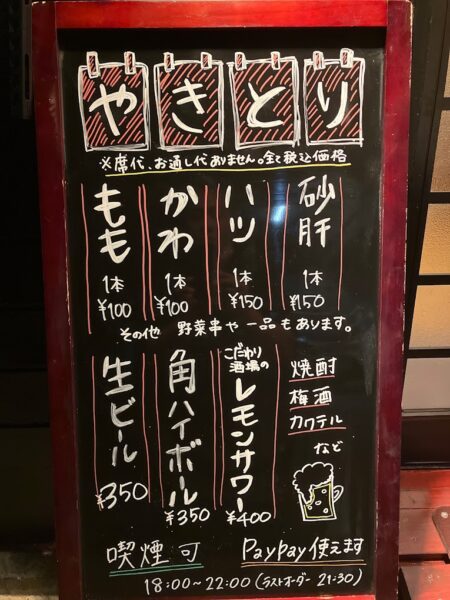 やきとり
※席代、お通し代ありません。全て税込価格
もも
1本
¥100
かわ
1本
¥100
ハツ
1本
¥150
砂肝
1本
¥150
その他 野菜串や一品もあります。
生ビール
¥350
角ハイボール
¥350
こだわり酒場の
レモンサワー
¥400
焼酎
梅酒
カクテル
など
喫煙可
PayPay使えます
18:00~22:00(ラストオーダー 21:30)